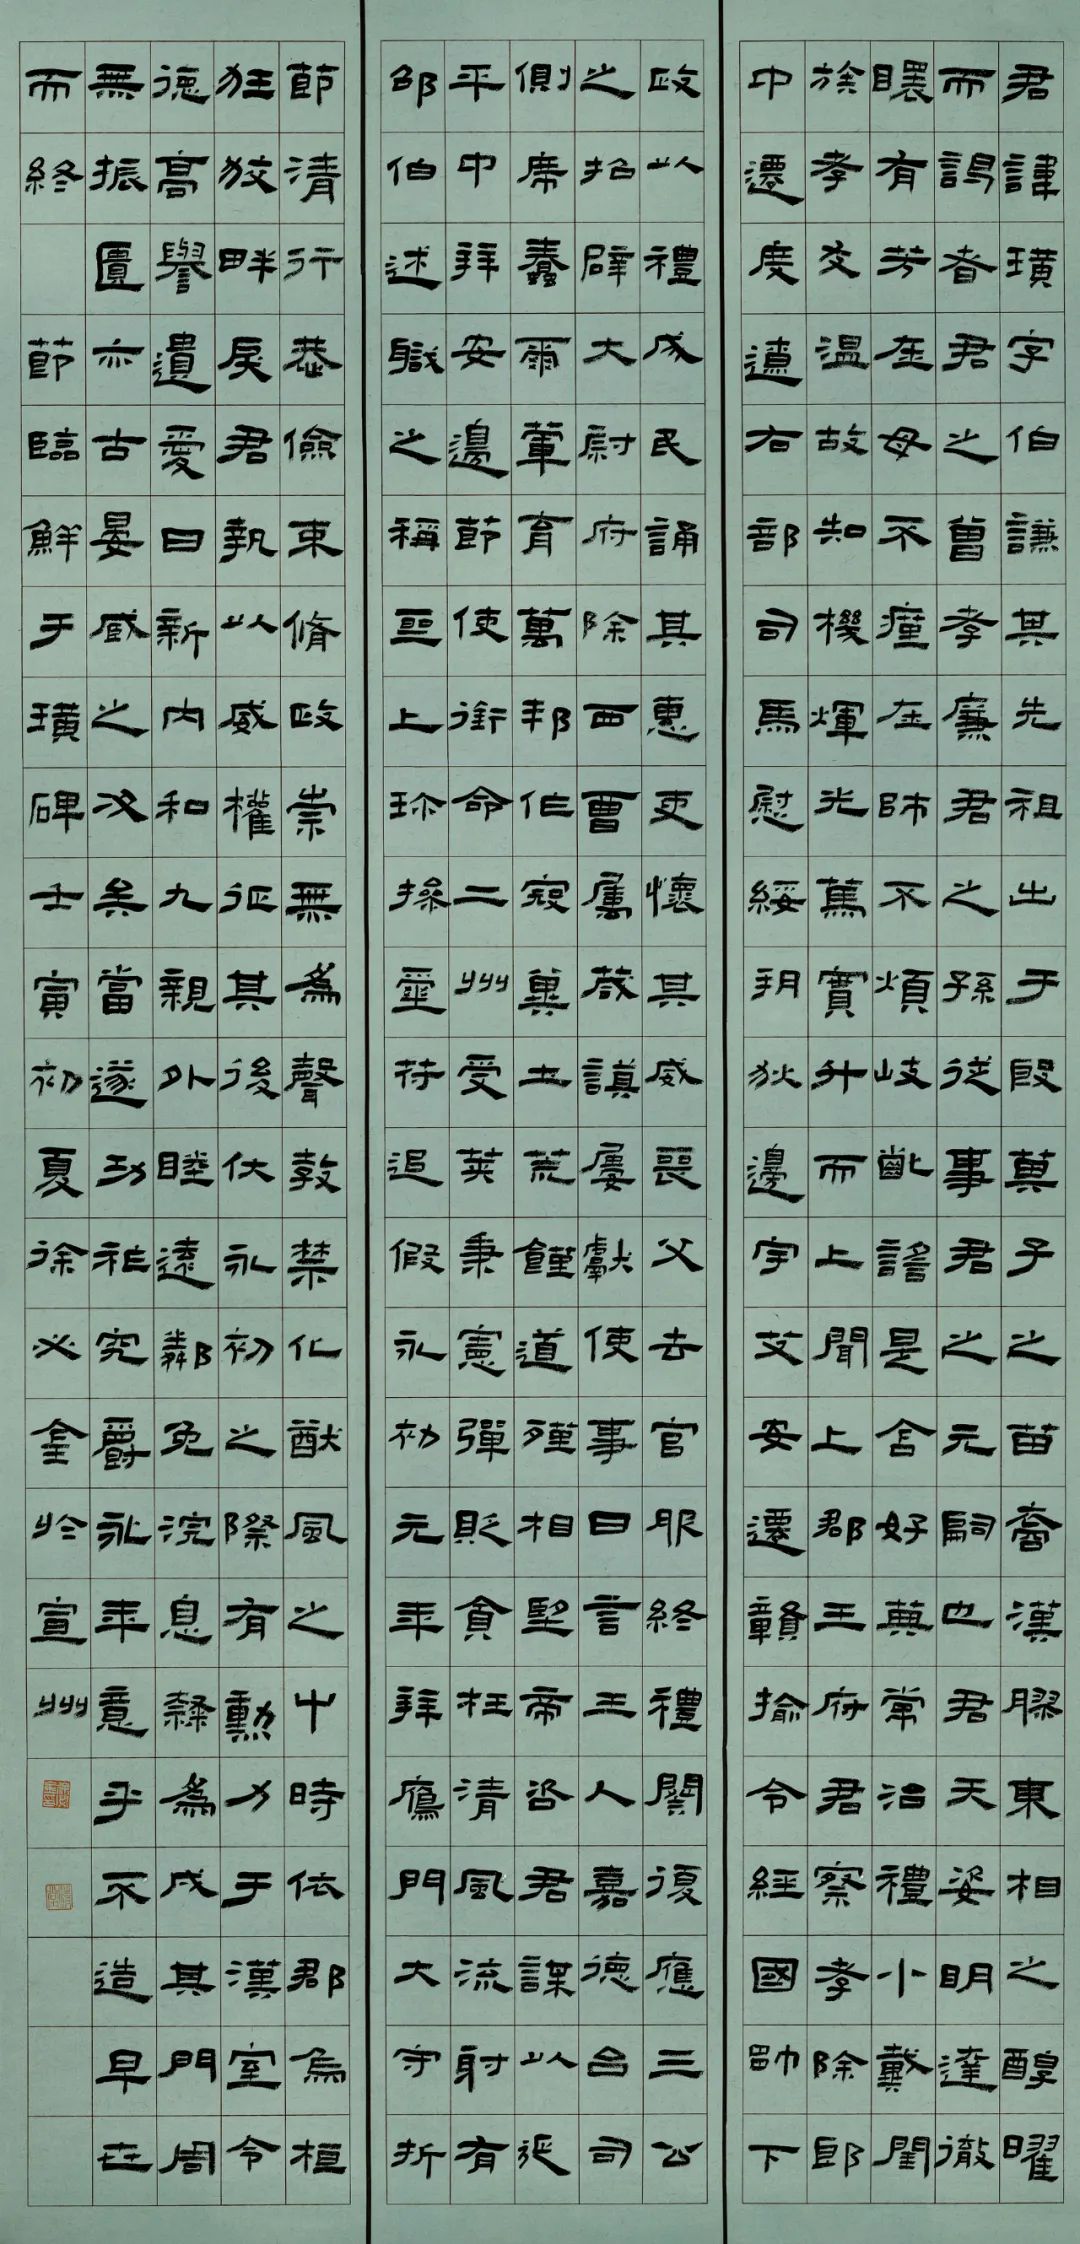 君諱璜字伯謙其先祖出于殷箕子之苗裔漢膠東相之醇曜
而謁者君之曾孝廉君之孫從事君之元嗣也君天姿明達徹
有芳在母不瘇在師不煩岐齔謠是含好典常治禮小戴閨
族孝友溫故知機煇光篤實升而上聞上郡王府君察孝除郎
中遷度遼右部司馬慰綏朔狄邊宇艾安遷贛揄令經國帥下
政以禮成民誦其惠吏懷其威喪父去官服終禮闋復應三公
之招辟大尉府除西曹屬葴謨屢獻使事日言王人嘉德台司
側席蠢爾葷育萬邦作寇冀土荒饉道殣相望帝咨君謀以延
平中拜安邊節使銜命二州受莢秉憲彈貶貪枉清風流射有
邵伯述職之稱亟上珎操璽符追假永初元年拜鴈門大守折
節清行恭儉束脩政崇無爲聲敎禁化猷風之中時依郡烏桓
狂狡畔戾君執以威權征其後伏永初之際有勳力于漢室令
德高譽遺愛日新內和九親外睦遠鄰免浣息隸爲成其門周
無振匱亦古晏臧之次矣當遂功祚究爵永年意乎不造早世
而終 節臨鮮于璜碑壬寅初夏徐必奎於宣州